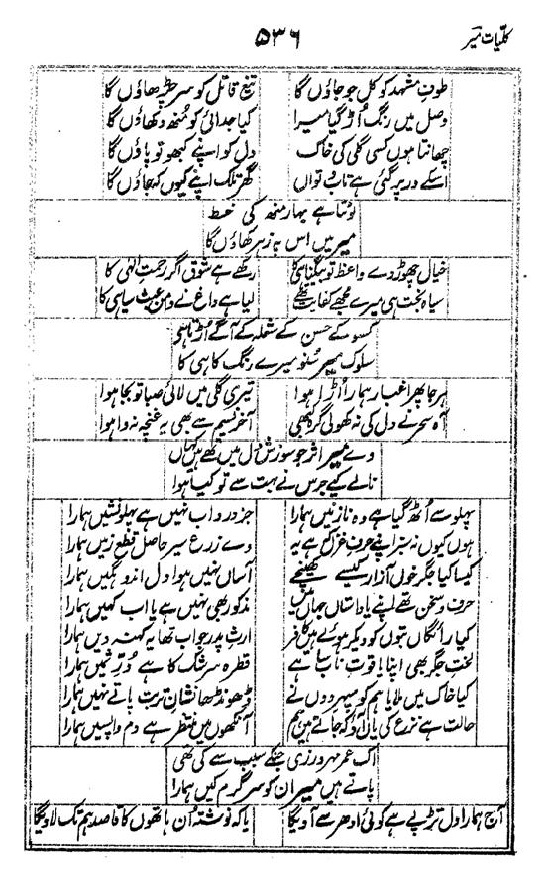 کلیات میر
۵۳۶
طوفِ مشہد کو کل جو جاؤں گا تیغِ قاتل کو سر چڑھاؤں گا
وصل میں رنگ اُڑ گیا میرا کیا جدائی کو مُنھ دکھاؤں گا
چھانتا ہوں کسی گلی کی خاک دل کو اپنے کبھو تو پاؤں گا
اسکے در پر گئی ہے تاب و تواں گھر تلک اپنے کیوں کہ جاؤں گا
لوٹتا ہے بہار منھ کی خط
میر میں اس پہ زہر کھاؤں گا
خیال چھوڑ دے واعظ تو بیگناہی کا رکھے ہے شوق اگر رحمتِ الٰہی کا
سیاہ بخت ہی میرے مجھے کفایت تھے لیا ہے داغ نے دامن عبث سیاہی کا
کسو کے حسن کے شعلہ کے آگے اُڑتا ہے
سلوک میر سُنو میرے رنگ کاہی کا
ہر جا پھرا غبار ہمارا اُڑا ہوا تیری گلی میں لائی صبا تو بجا ہوا
آہ سحر نے دل کی نہ کھولی گرہ کبھی آخر نسیم سے بھی یہ غنچہ نہ وا ہوا
وے میر اثر جو سوزشِ دل میں تھے ہیں کہاں
نالے کیے جرس نے بہت سے تو کیا ہوا
پہلو سے اُٹھ گیا ہے وہ نازنیں ہمارا جز درد اب نہیں ہے پہلو نشیں ہمارا
ہوں کیوں نہ سبز اپنے حرفِ غزل کہ ہے یہ وے زرع سیر حاصل قطع زمیں ہمارا
کیسا کیا جگر خوں آزار کیسے کھینچے آساں نہیں ہوا دل اندوہ گیں ہمارا
حرف و سخن تھے اپنے یا داستاں جہاں میں مذکور بھی نہیں ہے یا اب کہیں ہمارا
کیا رائگاں بتوں کو دیکر ہوئے ہیں کافر ارثِ پدر جو اب تھا یہ کہنہ دیں ہمارا
لختِ جگر بھی اپنا یاقوتِ ناب سا ہے قطرہ سرشک کا ہے دُرِّ ثمیں ہمارا
کیا خاک میں ملایا ہم کو سپہرِ دوں نے ڈھونڈھا نشانِ تربت پاتے نہیں ہمارا
حالت ہے نزع کی یاں آؤ کہ جاتے ہیں ہم آنکھوں میں منتظر ہے دم واپسیں ہمارا
اک عمر مہر ورزی جنکے سبب سے کی تھی
پاتے ہیں میر ان کو سر گرم کیں ہمارا
آج ہمارا دل تڑپے ہے کوئی ادھر سے آویگا یا کہ نوشتہ اُن ہاتھوں کا قاصد ہم تک لاویگا